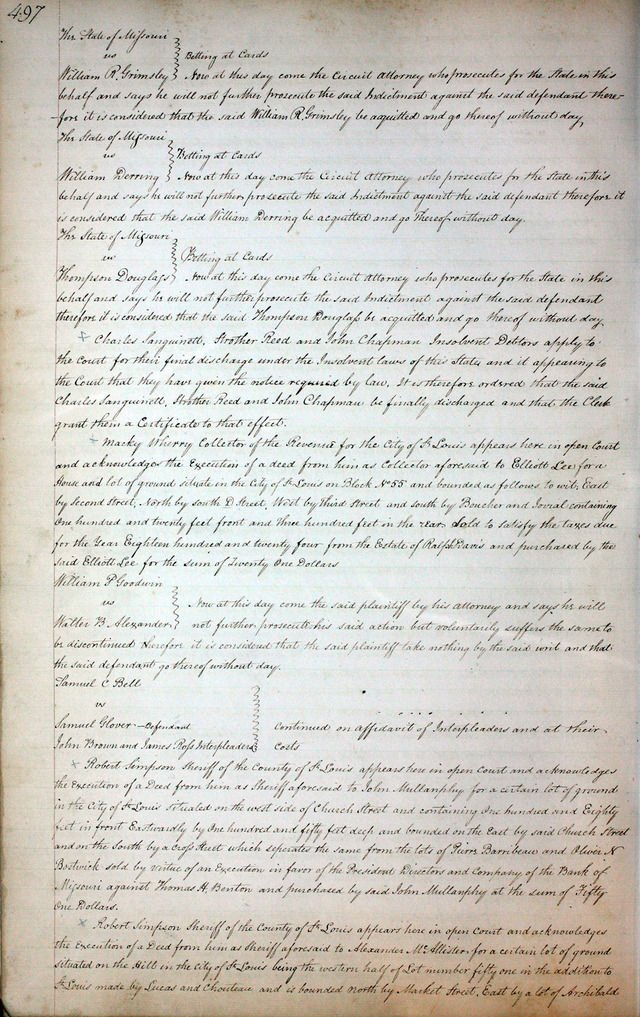 497
The State of Missouri
vs Betting at Cards
William R. Grimsley Now at this day come the Circuit Attorney who prosecutes for the State in this
behalf and says he will not further prosecute the said Indictment against the said defendant there-
fore it is considered that the said William R. Grimsley be acquitted and go thereof without day.
The State of Missouri
vs Betting at Cards
William Derring Now at this day come the Circuit Attorney who prosecutes for the State in this
behalf and says he will not further prosecute the said Indictment against the said defendant therefore it
is considered that the said William Derring be acquitted and go thereof without day.
The State of Missouri
vs Betting at Cards
Thompson Douglass Now at this day come the Circuit Attorney who prosecutes for the State in this
behalf and says he will not further prosecute the said Indictment against the said defendant
therefore it is considered that the said Thompson Douglass be acquitted and go thereof without day.
+ Charles Sanguinett, Strother Reed and John Chapman Insolvent Debtors apply to
the Court for their final discharge under the Insolvent laws of this State and it appearing to
the Court that they have given the notice required by law, It is therefore ordered that the said
Charles Sanguinett, Strother Reed and John Chapman be finally discharged and that the Clerk
grant them a Certificate to that effect.
+ Macky Wherry Collector of the Revenue for the City of St Louis appears here in open Court
and acknowledges the Execution of a deed from him as Collector aforesaid to Elliott Lee for a
House and lot of ground situate in the City of St Louis on Block No 55 and bounded as follows to wit, East
by Second Street, North by south D Street, West by Third Street and south by Boucher and containing
One hundred and twenty feet front and three hundred feet in the rear. Sold to satisfy the taxes due
for the Year Eighteen hundred and twenty four from the Estate of Ralph Davis and purchased by the
said Elliott Lee for the sum of Twenty One Dollars
William P Goodwin
vs Now at this day come the said plaintiff by his attorney and says he will
Walter B. Alexander not further prosecute his said action but voluntarily suffers the same to
be discontinued therefore it is considered that the said plaintiff take nothing by the said writ and that
the said defendant go thereof without day.
Samuel C Bell
vs
Samuel Glover — Defendant Continued on affidavit of Interpleaders and at their
John Brown and James Ross Interpleaders costs
+ Robert Simpson Sheriff of the County of St Louis appears here in open Court and acknowledges
the Execution of a Deed from him as Sheriff aforesaid to John Mullanphy for a certain lot of ground
in the City of St Louis situated on the west side of Church Street and containing One hundred and Eighty
feet in front Eastwardly by One hundred and fifty feet deep and bounded on the East by said Church Street
and on the South by a Cross Street which seperates the same from the lots of Pierre Barribeau and Oliver N
Bostwick sold by virtue of an Execution in favor of the President Directors and Company of the Bank of
Missouri against Thomas H. Benton and purchased by said John Mullanphy at the sum of Fifty
One Dollars.
+ Robert Simpson Sheriff of the County of St Louis appears here in open Court and acknowledges
the Execution of a Deed from him as Sheriff aforesaid to Alexander McAllister for a certain lot of ground
situated on the Hill in the City of St Louis being the western half of Lot number fifty one in the addition to
St Louis made by Lucas and Chouteau and is bounded north by Market Street, East by a lot of Archibald